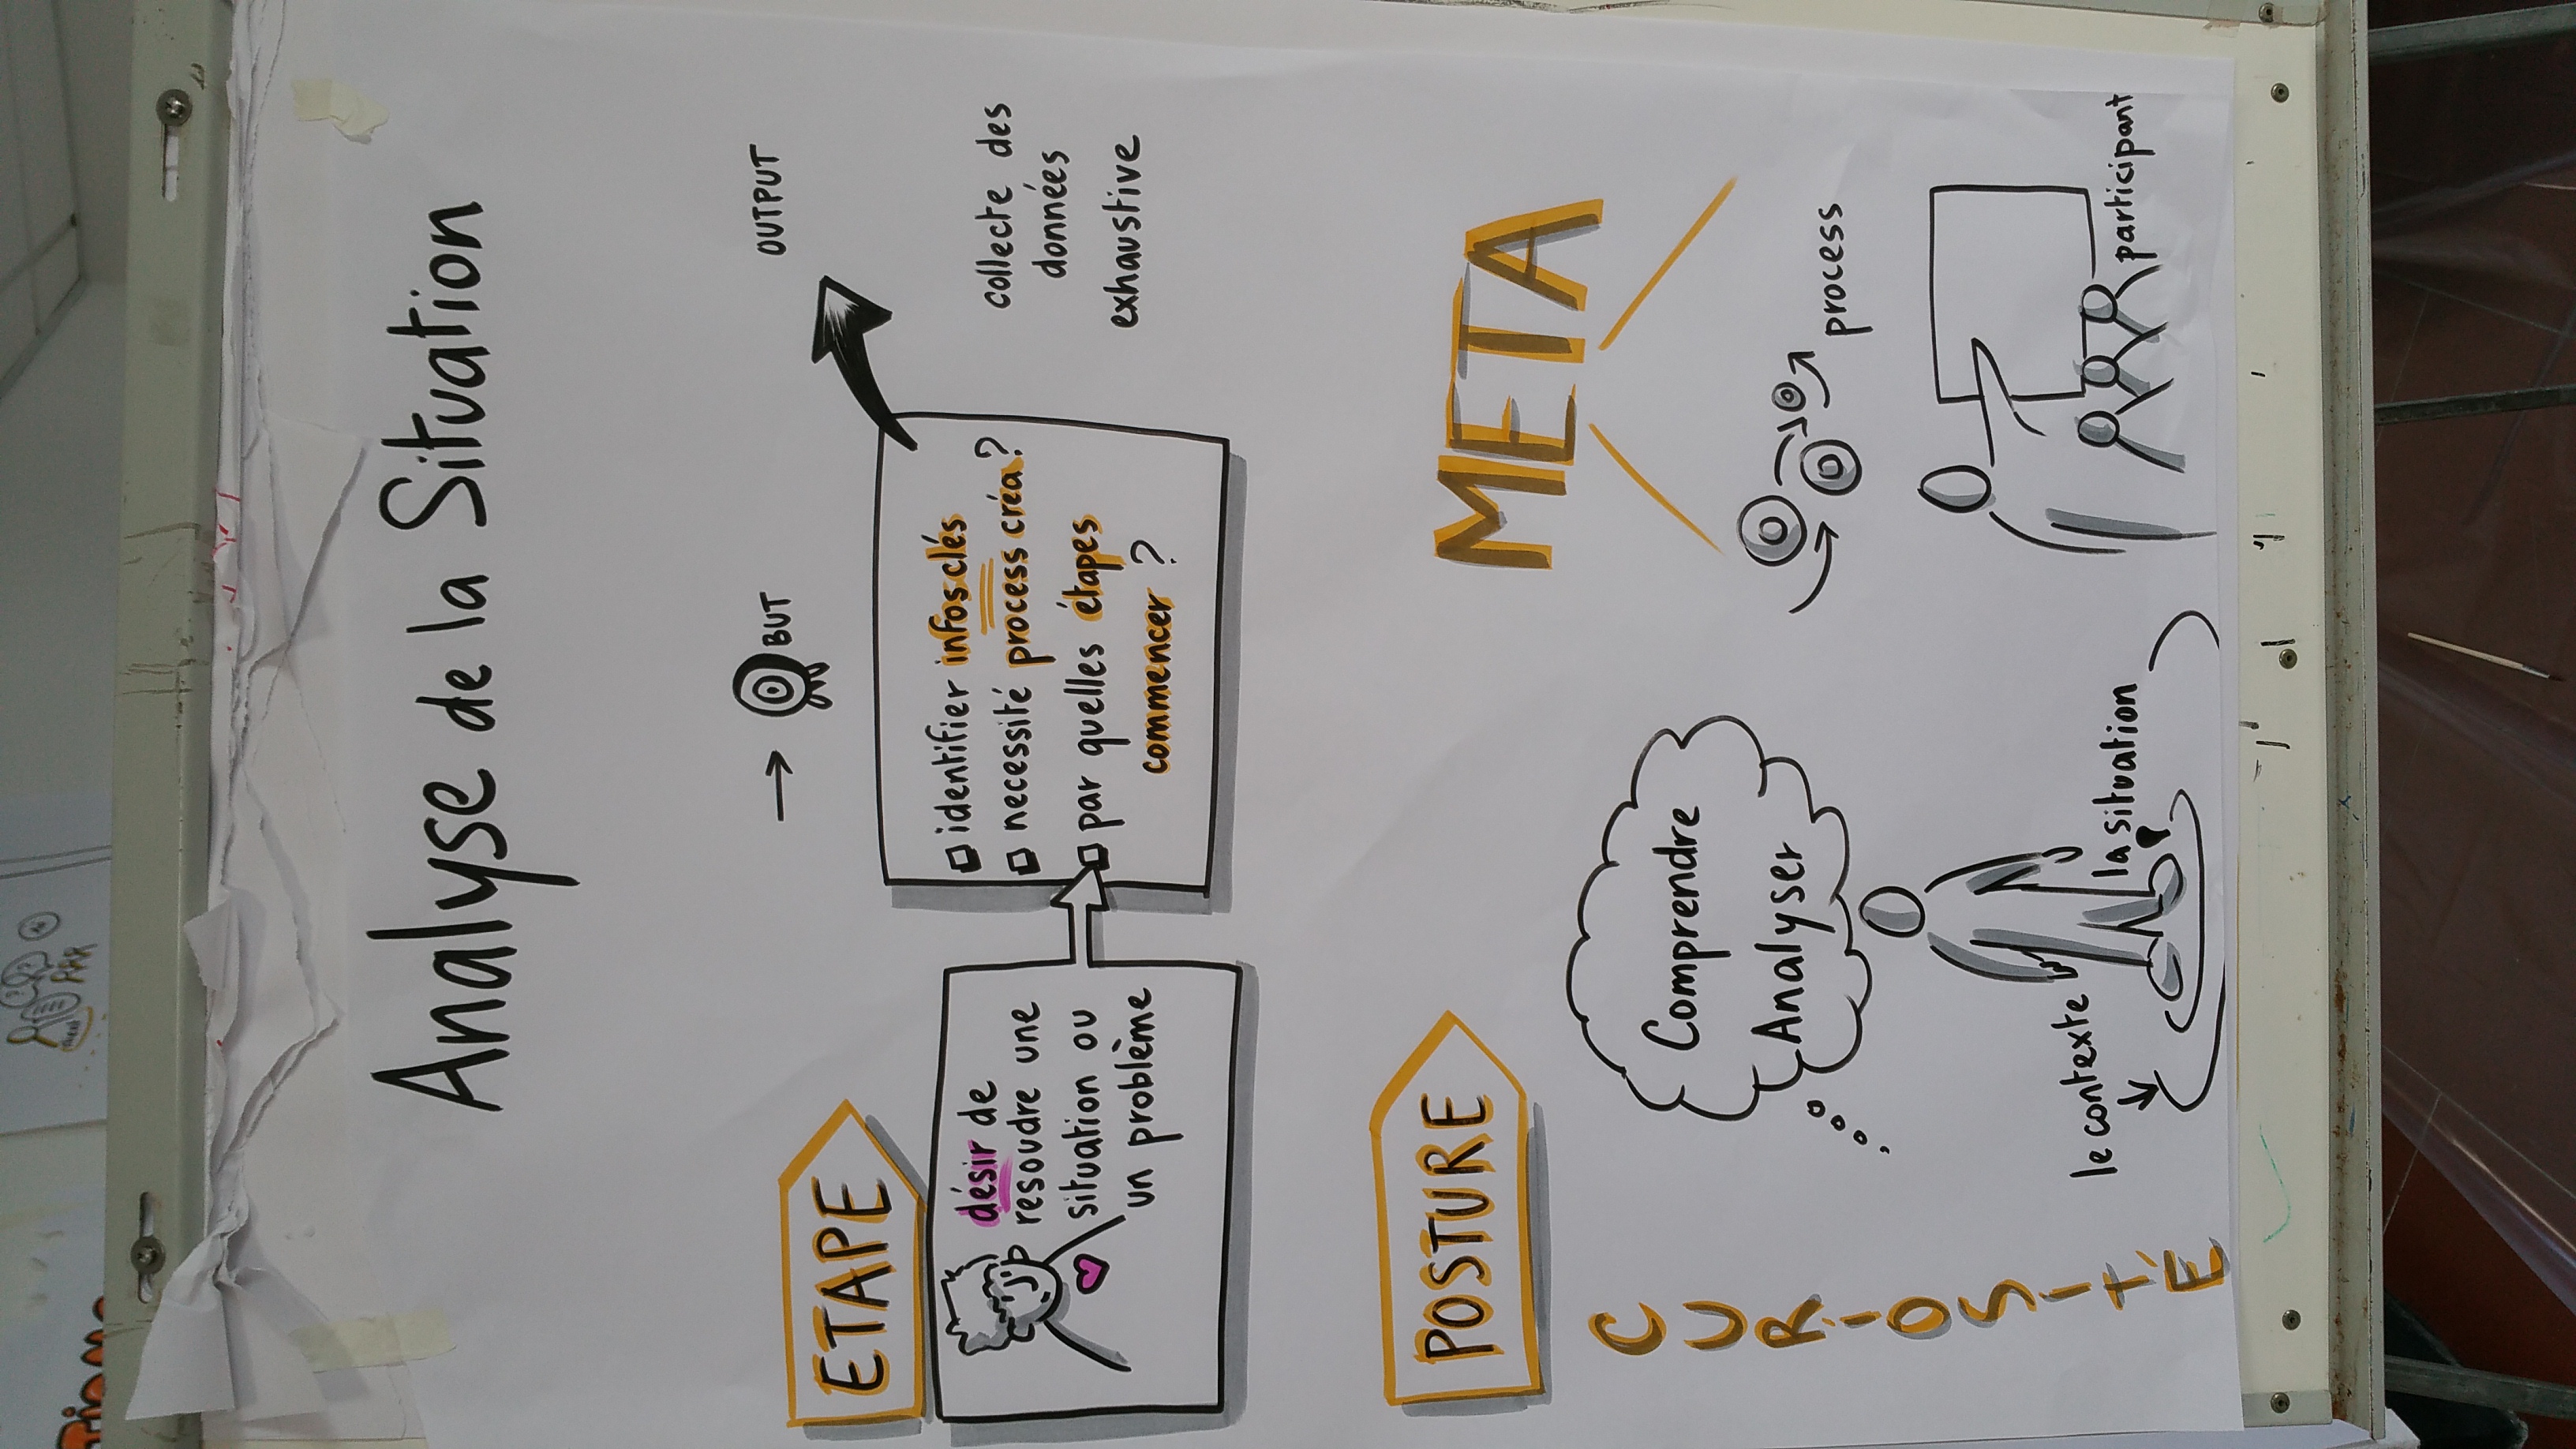 Analyse de la Situation
→ BUT
OUTPUT
ETAPE
désir de
resoudre une
situation ou
un problème
identifier infos clés
necessité process créa?
par quelles étapes
commencer ?
collecte des
données
exhaustive
POSTURE
CURIOSITÉ
Comprendre
Analyser
le contexte
la situation
META
process
participant